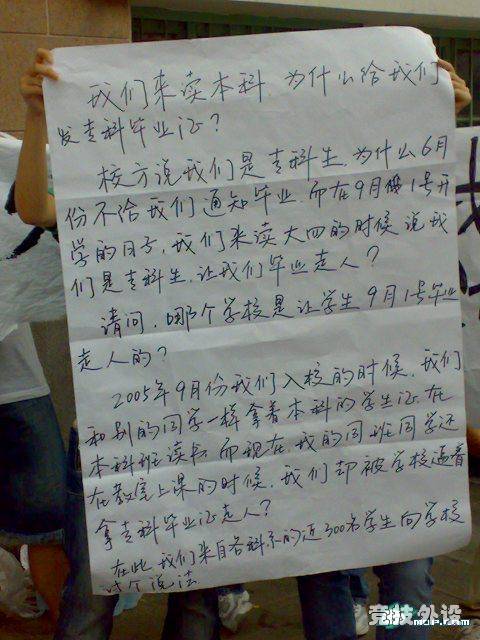 我们来读本科,为什么给我们
发专科毕业证?
校方说我们是专科生,为什么6月
份不给我们通知毕业,而在9月1号开
学的日子,我们来读大四的时候说我
们是专科生,让我们毕业走人?
请问,哪个学校是让学生9月1号毕业
走人的?
2005年9月份我们入校的时候,我们
和别的同学一样拿着本科的学生证,在
本科班读书,而现在,我的同班同学还
在教室上课的时候,我们却被学校逼着
拿专科毕业证走人?
在此我们来自各科系的近300名学生向学校
讨个说法
竞技外设